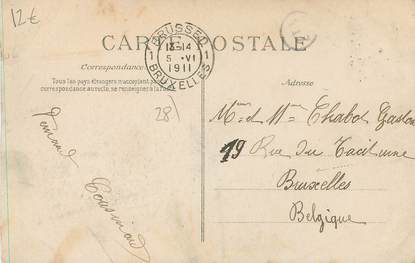 12€
CARTE POSTALE
BRUSSEL
1 13-14 1
5 -VI
1911
BRUXELLES
Correspondance
Tous les pays étrangers n'acceptent pas la
correspondance au recto, se renseigner à la
Adresse
28
Mr et Mme Chabot Gaston
19 Rue du Taciturne
Bruxelles
Belgique
Cousin